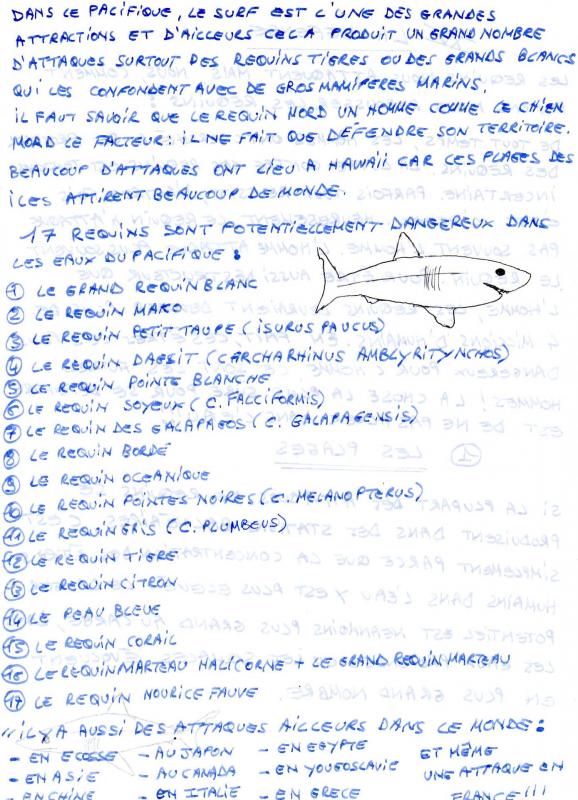 DANS LE PACIFIQUE, LE SURF EST L'UNE DES GRANDES
ATTRACTIONS ET D'AILLEURS CELA PRODUIT UN GRAND NOMBRE
D'ATTAQUES SURTOUT DES REQUINS TIGRES OU DES GRANDS BLANCS
QUI LES CONFONDENT AVEC DE GROS MAMIFERES MARINS.
IL FAUT SAVOIR QUE LE REQUIN MORD UN HOMME COMME LE CHIEN
MORD LE FACTEUR : IL NE FAIT QUE DÉFENDRE SON TERRITOIRE.
BEAUCOUP D'ATTAQUES ONT LIEU A HAWAII CAR CES PLAGES DES
ILES ATTIRENT BEAUCOUP DE MONDE.
17 REQUINS SONT POTENTIELLEMENT DANGEREUX DANS
LES EAUX DU PACIFIQUE :
1 LE GRAND REQUIN BLANC
2 LE REQUIN MAKO
3 LE REQUIN PETIT TAUPE (ISURUS PAUCUS)
4 LE REQUIN DAGSIT (CARCHARHINUS AMBLYRITYNCHOS)
5 LE REQUIN POINTE BLANCHE
6 LE REQUIN SOYEUX (C. FALCIFORMIS)
7 LE REQUIN DES GALAPAGOS (C. GALAPAGENSIS)
8 LE REQUIN BORDÉ
9 LE REQUIN OCEANIQUE
10 LE REQUIN POINTES NOIRES (C. MELANOPTERUS)
11 LE REQUIN GRIS (C. PLUMBEUS)
12 LE REQUIN TIGRE
13 LE REQUIN CITRON
14 LE PEAU BLEUE
15 LE REQUIN CORAIL
16 LE REQUIN MARTEAU HALICORNE + LE GRAND REQUIN MARTEAU
17 LE REQUIN NOURICE FAUVE
IL Y A AUSSI DES ATTAQUES AILLEURS DANS LE MONDE :
- EN ECOSSE - AU JAPON - EN EGYPTE ET MÊME
- EN ASIE - AU CANADA - EN YOUGOSLAVIE UNE ATTAQUE EN
- EN CHINE - EN ITALIE - EN GRECE FRANCE !!!